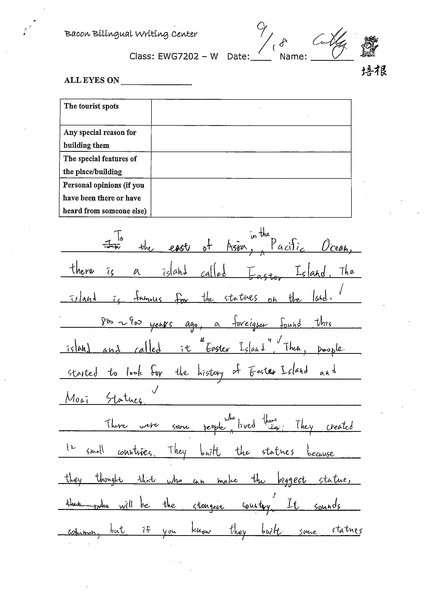 Bacon Bilingual Writing Center
Class: EWG7202 – W Date: 9/18 Name: Cathy
培根
ALL EYES ON
The tourist spots
Any special reason for
building them
The special features of
the place/building
Personal opinions (if you
have been there or have
heard from someone else)
To the east of Asia, in the Pacific Ocean,
there is a island called Easter Island. The
island is famous for the statues on the land.
800~900 years ago, a foreigner found this
island and called it "Easter Island". Then, people
started to look for the history of Easter Island and
Moai Statues.
There were some people who lived there. They created
12 small countries. They built the statues because
they thought that who can make the biggest statue,
will be the stongest country. It sounds
common, but if you know they built some statues